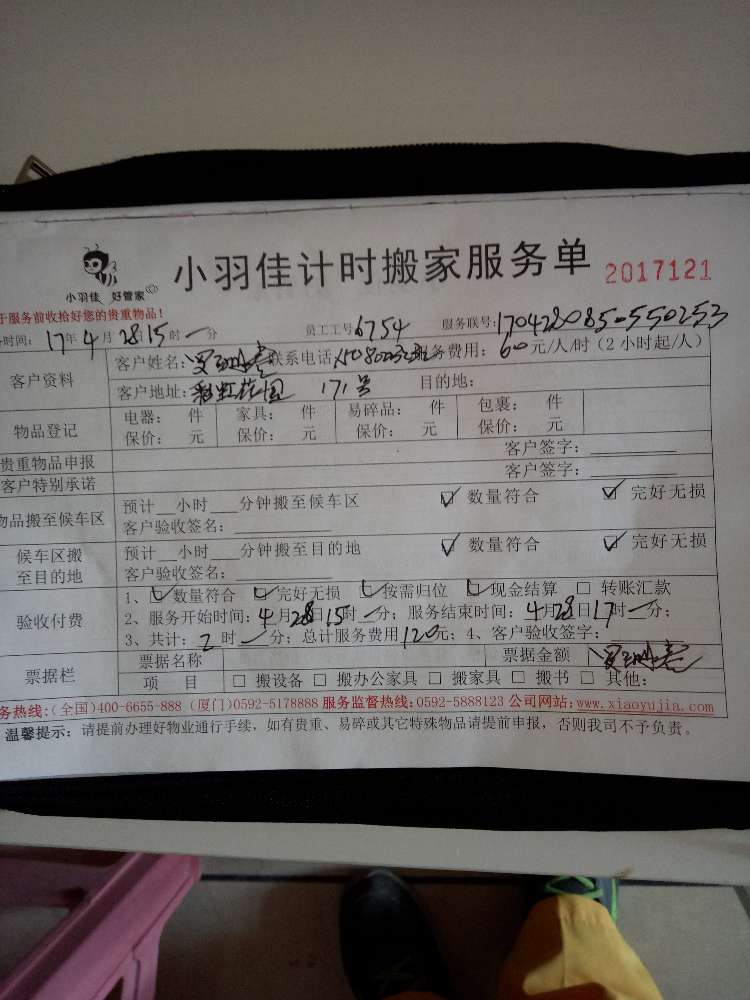 小羽佳计时搬家服务单 2017121
小羽佳 好管家
于服务前收拾好您的贵重物品!
务时间: 17年4月28日15时一分 员工工号6754 服务联号:1704280850550253
客户资料 客户姓名: 联系电话 服务费用: 60元/人/时(2小时起/人)
客户地址: 彩虹花园 171号 目的地:
物品登记 电器: 件 家具: 件 易碎品: 件 包裹: 件
保价: 元 保价: 元 保价: 元 保价: 元
贵重物品申报 客户签字:
客户特别承诺 客户签字:
物品搬至候车区 预计__小时___分钟搬至候车区 ☑ 数量符合 ☑ 完好无损
客户验收签名:
候车区搬至目的地 预计__小时___分钟搬至目的地 ☑ 数量符合 ☑ 完好无损
客户验收签名:
验收付费 1、☑数量符合 ☑完好无损 ☑按需归位 ☑现金结算 □ 转账汇款
2、服务开始时间: 4月28日15时一分; 服务结束时间: 4月28日17时一分;
3、共计: 2时一分; 总计服务费用120元; 4、客户验收签字:
票据栏 票据名称 票据金额
项 目 □ 搬设备 □ 搬办公家具 □ 搬家具 □ 搬书 □ 其他:
务热线:(全国)400-6655-888 (厦门)0592-5178888 服务监督热线:0592-5888123 公司网站:www.xiaoyujia.com
温馨提示: 请提前办理好物业通行手续, 如有贵重、易碎或其它特殊物品请提前申报, 否则我司不予负责。